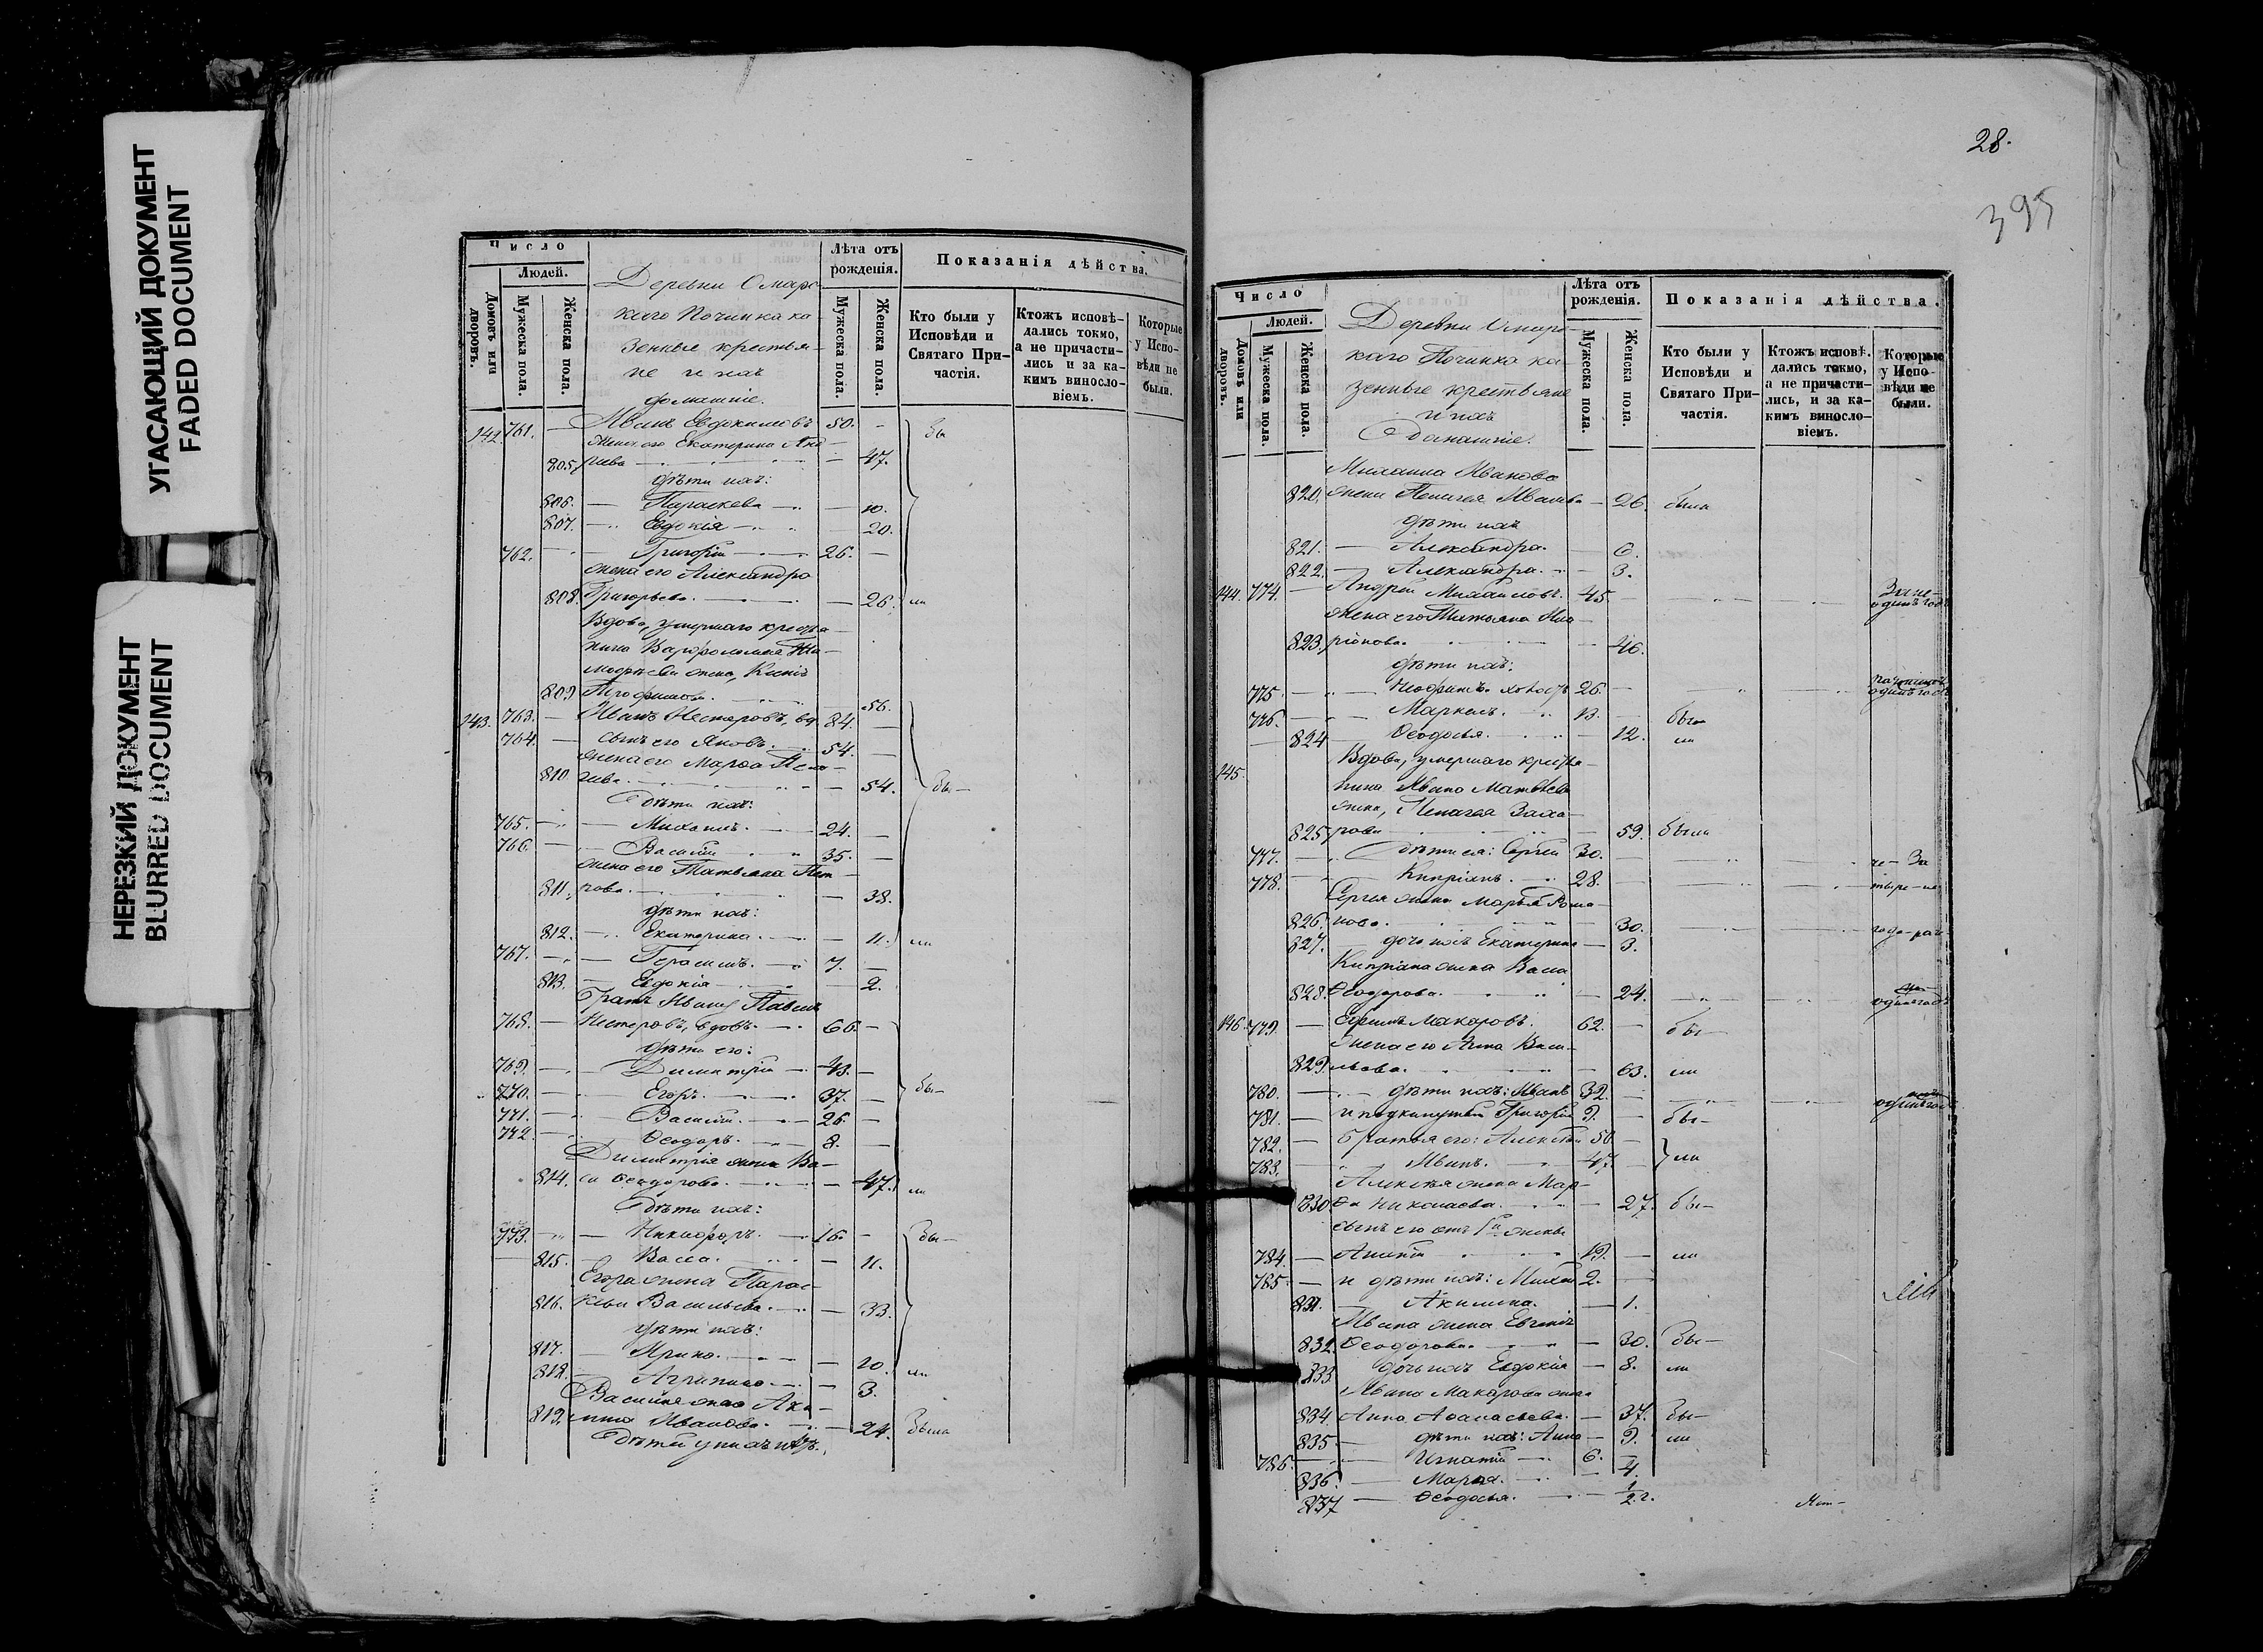 УГАСАЮЩИЙ ДОКУМЕНТ
FADED DOCUMENT
НЕРЕЗКИЙ ДОКУМЕНТ
BLURRED DOCUMENT
Число
Людей.
Домовъ или дворовъ.
Мужеска пола.
Женска пола.
Деревни Омарс-
каго Починка ка-
зенные крестья-
не и ихъ
домашніе.
Лѣта отъ рожденія.
Мужеска пола.
Женска пола.
Показанія дѣйства.
Кто были у Исповѣди и Святаго При-частія.
Ктожъ исповѣ-дались токмо, а не причасти-лись и за ка-кимъ винословіемъ.
Которые у Испо-вѣди не были.
142. 761. — Иванъ Евдокимовъ 50. — бы
жена его Екатерина Анд-
805. — 47.
дѣти ихъ:
806. — Параскева — 10.
807. — Евдокія — 20.
762. — Григорій — 26. —
жена его Александра
808. Григорьева. — 26. ли
Вдова, умершаго кресть-
нина Варфоломея Ти-
мофѣева жена,
809 Трофимова. 56.
143. 763. — Иванъ Нестеровъ, вд. 84. —
764. — сынъ его Яковъ. 54. —
жена его Марѳа
810 — 54. бы—
дѣти ихъ:
765. — Михаилъ. — 24. —
766. — Василій 35. —
жена его Татьяна Пет-
811. рова. — 38.
дѣти ихъ:
812. — Екатерина. — 11. ли
767. — Герасимъ. — 7. —
813. — Евдокія — 2.
Братъ Ивана Павелъ
768. — Нестеровъ, вдовъ. — 66. —
дѣти его:
769. — Димитрій — 43. —
770. — Егоръ. — 37. — бы—
771. — Василій. — 26. —
772. — Ѳеодоръ. — 8. —
Димитрія жена Ва-
814. са Ѳеодорова. — 47. ли
дѣти ихъ:
773. — Никифоръ. — 16. — бы—
815. — Васса. — 11.
Егора жена Парас-
816. кева Васильева. — 33.
дѣти ихъ:
817. — Ирина. — 10.
818. — Агрипина. — 3. ли
Василія жена Аку-
819. лина Иванова. — 24. была
дѣтей у нихъ нѣтъ.
28.
395
Число
Людей.
Домовъ или дворовъ.
Мужеска пола.
Женска пола.
Деревни Омарс-
каго Починка ка-
зенные крестьяне
и ихъ
домашніе.
Лѣта отъ рожденія.
Мужеска пола.
Женска пола.
Показанія дѣйства.
Кто были у Исповѣди и Святаго При-частія.
Ктожъ исповѣ-дались токмо, а не причасти-лись, и за ка-кимъ винословіемъ.
Которые у Испо-вѣди не были.
Михаила Иванова
820. жена Пелагея Иванова — 26. была
дѣти ихъ
821. — Александра. — 6.
822. — Александра. — 3.
144. 774. — Андрей Михайловъ. 45. — одинъ годъ
жена его Татьяна Ила-
823. ріонова. — 46.
дѣти ихъ:
775 — холостъ 26. — одинъ годъ
776. — Маркелъ. 13. бы—
824 — Ѳеодосья. — 12. ли
145. Вдова, умершаго кресть-
нина Ивана Матвѣева
жена, Пелагея Заха-
825. рова — 59. была
777. — дѣти ея: Сергѣй 30. —
778. — Кипріянъ. 28. —
Сергея жена Марья Рома-
826. нова. — 30.
827. — дочь ихъ Екатерина — 3.
Кипріана жена Васса
828. Ѳеодорова. — 24. одинъ годъ
146. 779. — Ефимъ Макаровъ. 62. — бы—
жена его Анна Васи-
829. льева. — 63. ли
780. — дѣти ихъ: Иванъ 32. — одинъ годъ
781. — и подкинутый Григорій 9. — бы—
782. — Братья его: Алексѣй 50 —
783. — Иванъ. — 47. — ли
Алексѣя жена Мар-
830 ѳа Николаева. — 27. бы—
сынъ его отъ 1й жены
784. — 19. — ли
785. — и дѣти ихъ: 2. —
831. — Акилина. — 1.
Ивана жена Евгенія
832. Ѳеодорова. — 30. бы—
833 дочь ихъ Евдокія — 8. ли
Ивана Макарова жена
834. Анна Аѳанасьева. — 37. бы—
835. — дѣти ихъ: Анна — 9. ли
786. — Игнатій 6. —
836. — Марья. — 4.
837 — Ѳеодосья. — 1/2 г.